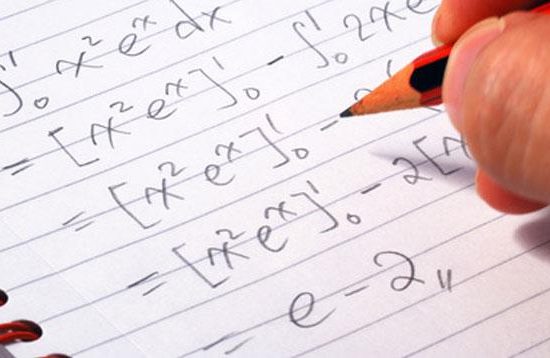 ∫₀¹ x² eˣ dx
= [x² eˣ]₀¹ - ∫₀¹ 2x e
= [x² eˣ]₀¹ - 2
= [x² eˣ]₀¹ - 2[x
= e - 2 〃